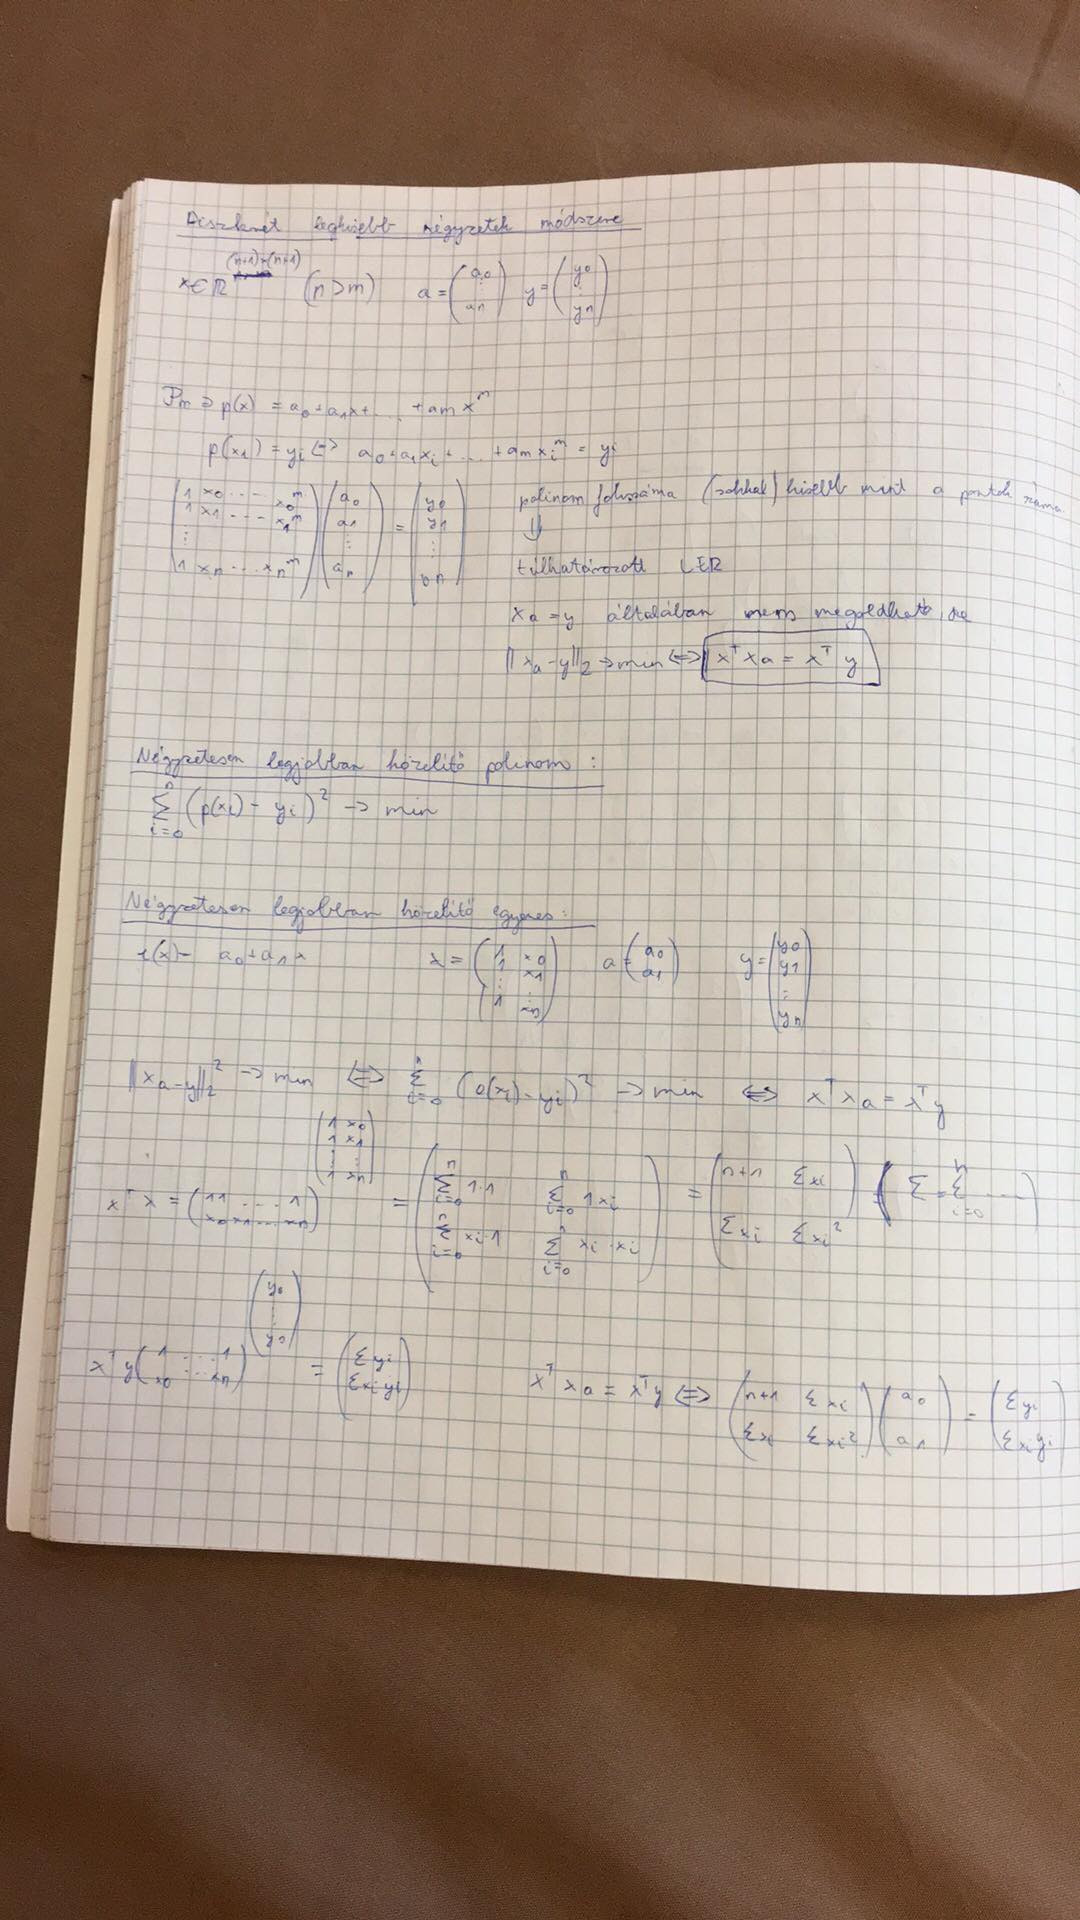 Diszkrét legkisebb négyzetek módszere
x∈ℝ^(n+1)×(n+1) (n>m) a = (a0 ⋮ an) y = (y0 ⋮ yn)
Pm ∋ p(x) = a0+a1x+... +am x^m
p(x1) = yi <=> a0+a1xi+... +am xi^m = yi
(1 x0 ... x0^m
1 x1 ... x1^m
⋮
1 xn ... xn^m) (a0 a1 ⋮ an) = (y0 y1 ⋮ yn)
polinom fokszáma (sokkal) kisebb mint a pontok száma
⇓
túlhatározott LER
xa = y általában nem megoldható, de
||xa-y||2 -> min <=> x^T xa = x^T y
Négyzetesen legjobban közelítő polinom :
n Σ i=0 (p(xi) - yi)^2 -> min
Négyzetesen legjobban közelítő egyenes :
e(x)= a0+a1x x = (1 x0 1 x1 ⋮ ⋮ 1 xn) a = (a0 a1) y = (y0 y1 ⋮ yn)
||xa-y||2^2 -> min <=> n Σ i=0 (e(xi) - yi)^2 -> min <=> x^T xa = x^T y
(1 x0
1 x1
⋮ ⋮
1 xn)
x^T x = (1 1 ... 1 x0 x1 ... xn) = (n Σ i=0 1·1 n Σ i=0 1xi n Σ i=0 xi·1 n Σ i=0 xi·xi) = (n+1 Σxi Σxi Σxi^2) (Σ = n Σ i=0 ...)
(y0
⋮
yn)
x^T y (1 ... 1 x0 ... xn) = (Σyi Σxiyi) x^T xa = x^T y <=> (n+1 Σxi Σxi Σxi^2) (a0 a1) = (Σyi Σxiyi)